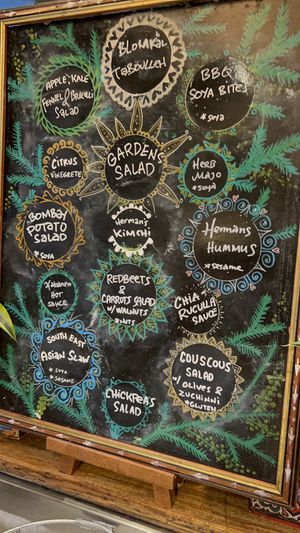 BLOMKÅL
TABOULLEH
APPLE, KALE
FENNEL & BROCCOLI
SALAD
BBQ
SOYA BITES
*SOYA
CITRUS
VINEGRETE
GARDENS
SALAD
HERB
MAJO
*SOYA
BOMBAY
POTATO
SALAD
*SOYA
Herman's
KiMCHi
Hermans
HUMMUS
*SESAME
HOT
SAUCE
REDBEETS &
CARROTS SALAD
w/ WALNUTS
*NUTS
CHIA
RUCULLA
SAUCE
SOUTH EAST
ASIAN SLAW
*SOYA
*SESAME
COUSCOUS
SALAD
w/ OLIVES &
ZUCHINNI
*GLUTEN
CHICKPEAS
SALAD